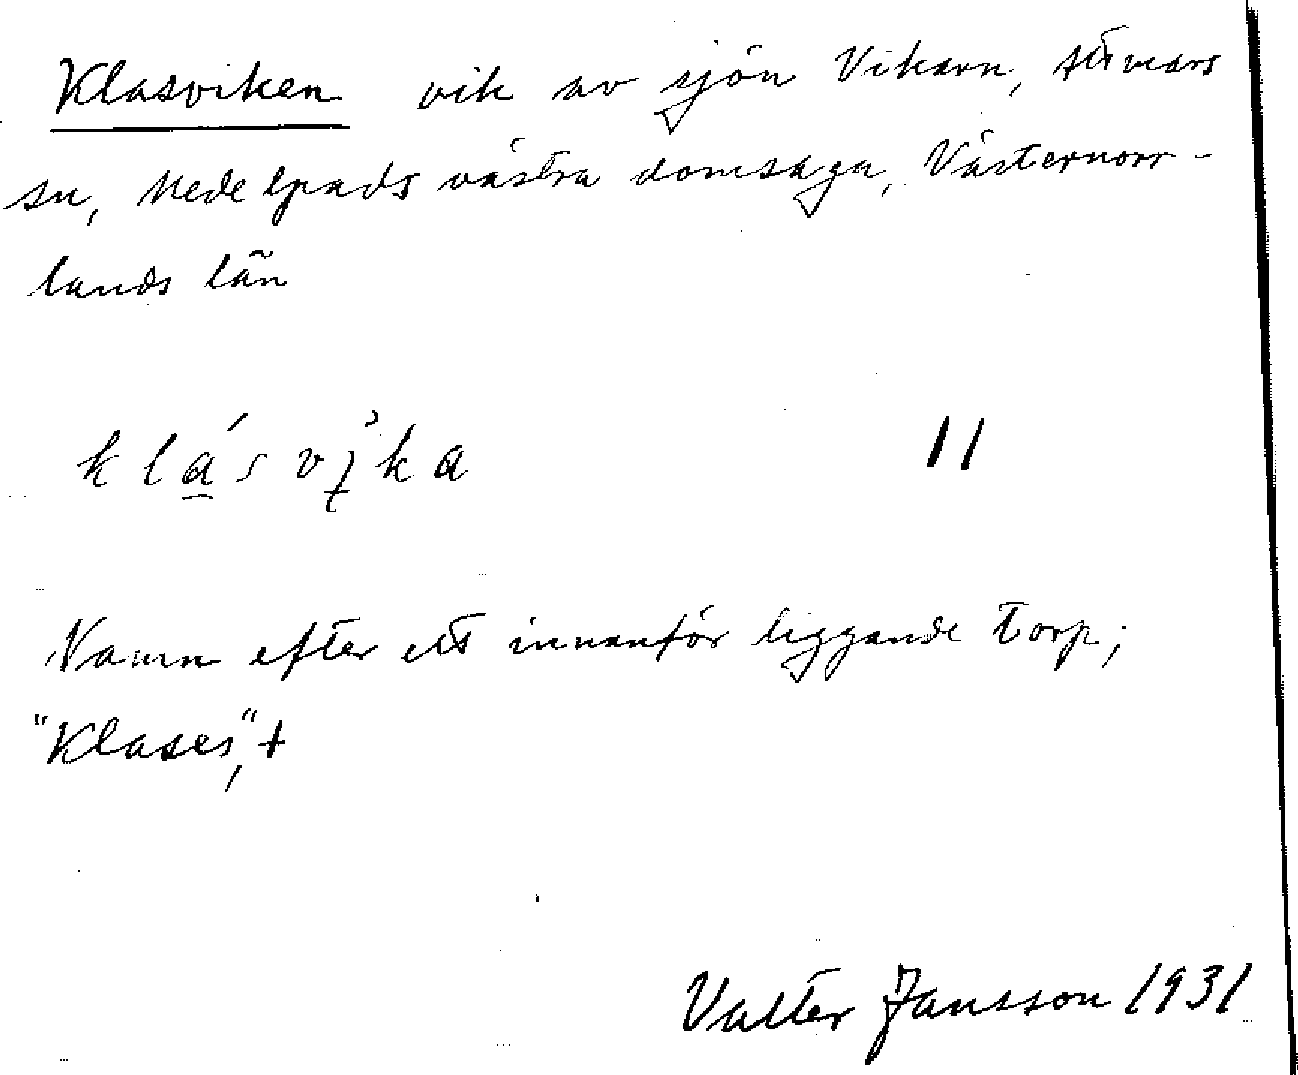 Klasviken vik av sjön Vikarn, Attmars
sn, Medelpads västra domsaga, Västernorr-
lands län
klásvika 11
Namn efter ett innanför liggande torp;
"Klases", +
Valter Jansson 1931